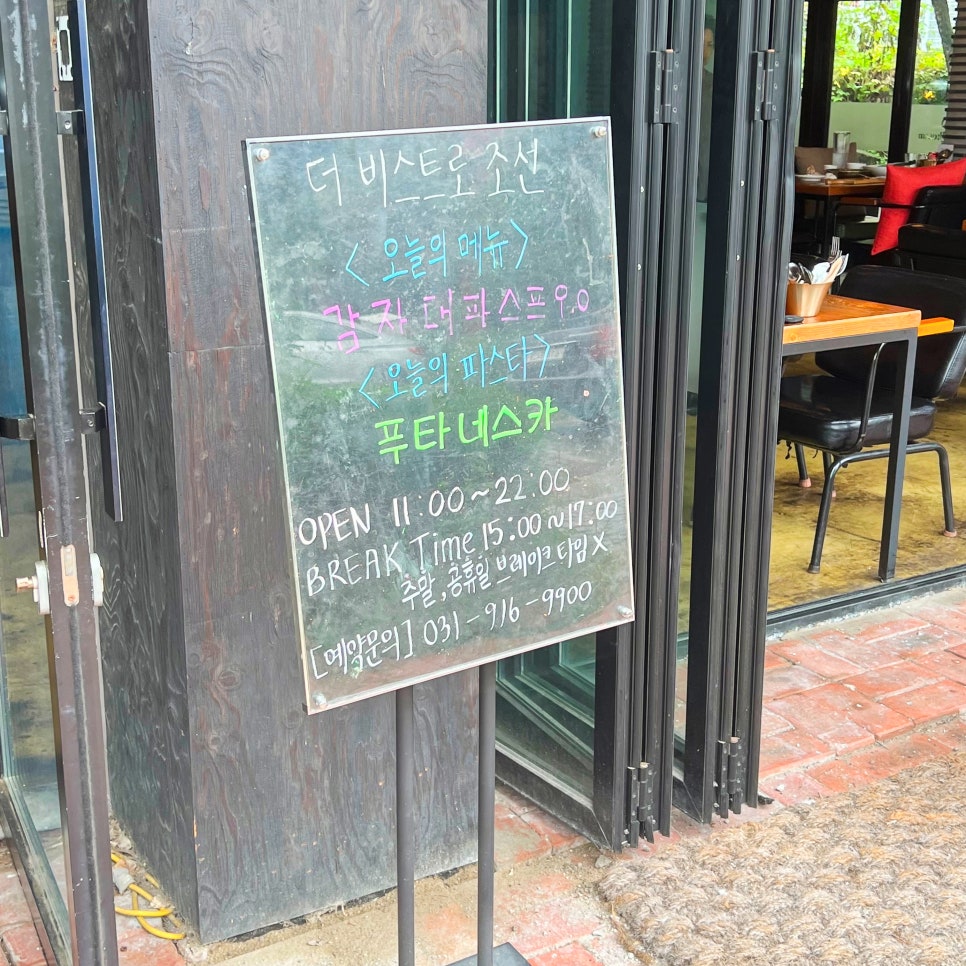 더 비스트로 조선
<오늘의 메뉴>
감자대파스프 9.0
<오늘의 파스타>
푸타네스카
OPEN 11:00~22:00
BREAK Time 15:00~17:00
주말, 공휴일 브레이크 타임 X
[예약문의] 031-916-9900